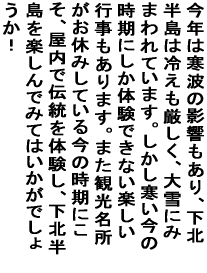 今年は寒波の影響もあり、下北
半島は冷えも厳しく、大雪にみ
まわれています。しかし寒い今の
時期にしか体験できない楽しい
行事もあります。また観光名所
がお休みしている今の時期にこ
そ、屋内で伝統を体験し、下北半
島を楽しんでみてはいかがでしょ
うか！